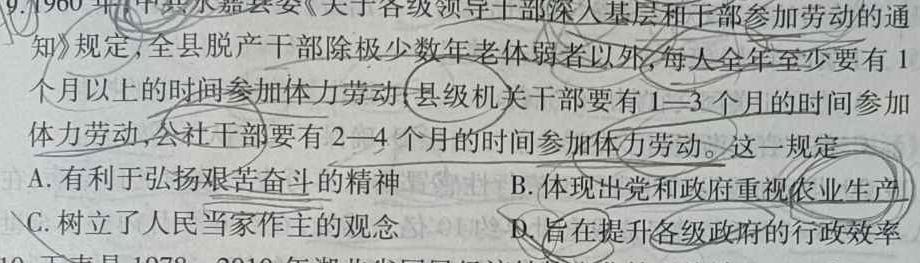 9.1960年,中共永嘉县委《关于各级领导干部深入基层和干部参加劳动的通
知》规定,全县脱产干部除极少数年老体弱者以外,每人全年至少要有1
个月以上的时间参加体力劳动(县级机关干部要有1—3个月的时间参加
体力劳动,公社干部要有2—4个月的时间参加体力劳动。这一规定
A. 有利于弘扬艰苦奋斗的精神 B. 体现出党和政府重视农业生产
C. 树立了人民当家作主的观念 D. 旨在提升各级政府的行政效率